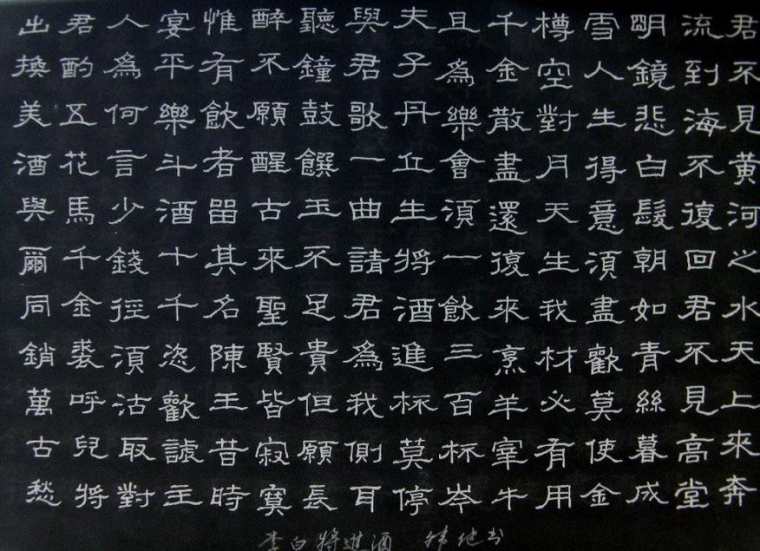 君不見黄河之水天上來奔
流到海不復回君不見高堂
明鏡悲白髮朝如青絲暮成
雪人生得意須盡歡莫使金
樽空對月天生我材必有用
千金散盡還復來烹羊宰牛
且為樂會須一飲三百杯岑
夫子丹丘生將酒進杯莫停
與君歌一曲請君為我側耳
聽鐘鼓饌玉不足貴但願長
醉不願醒古來聖賢皆寂寞
惟有飲者留其名陳王昔時
宴平樂斗酒十千恣歡謔主
人為何言少錢徑須沽取對
君酌五花馬千金裘呼兒將
出換美酒與爾同銷萬古愁
李白將進酒 书